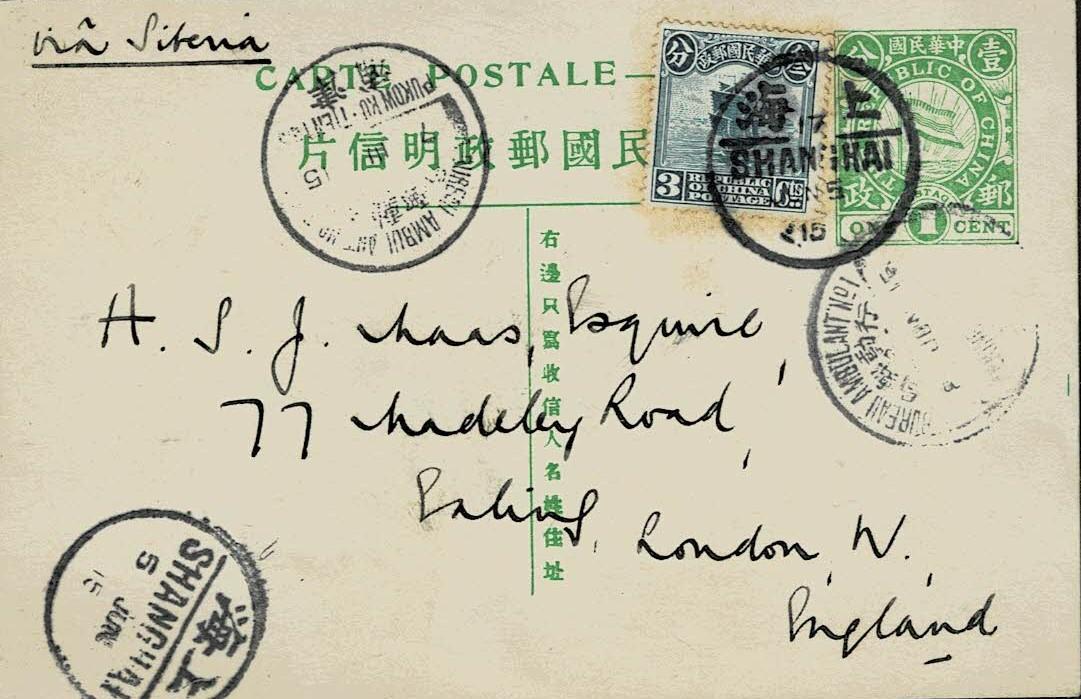 viâ Siberia
CARTE POSTALE
片信明政郵國民
分 政郵國民華中 叁
3 REPUBLIC OF CHINA POSTAGE Cts
分 國民華中 壹
REPUBLIC OF CHINA
POSTAGE
政 郵
ONE 1 CENT
海上
SHANGHAI
15
PUKOW KU-TIENTSIN
BUREAU AMBULANT No
BUREAU AMBULANT No 1
右邊只寫收信人名姓住址
H. S. J. Maas, Esquire,
77 Madeley Road,
Ealing,
London, W.
England
海上
SHANGHAI
5
JUN
15